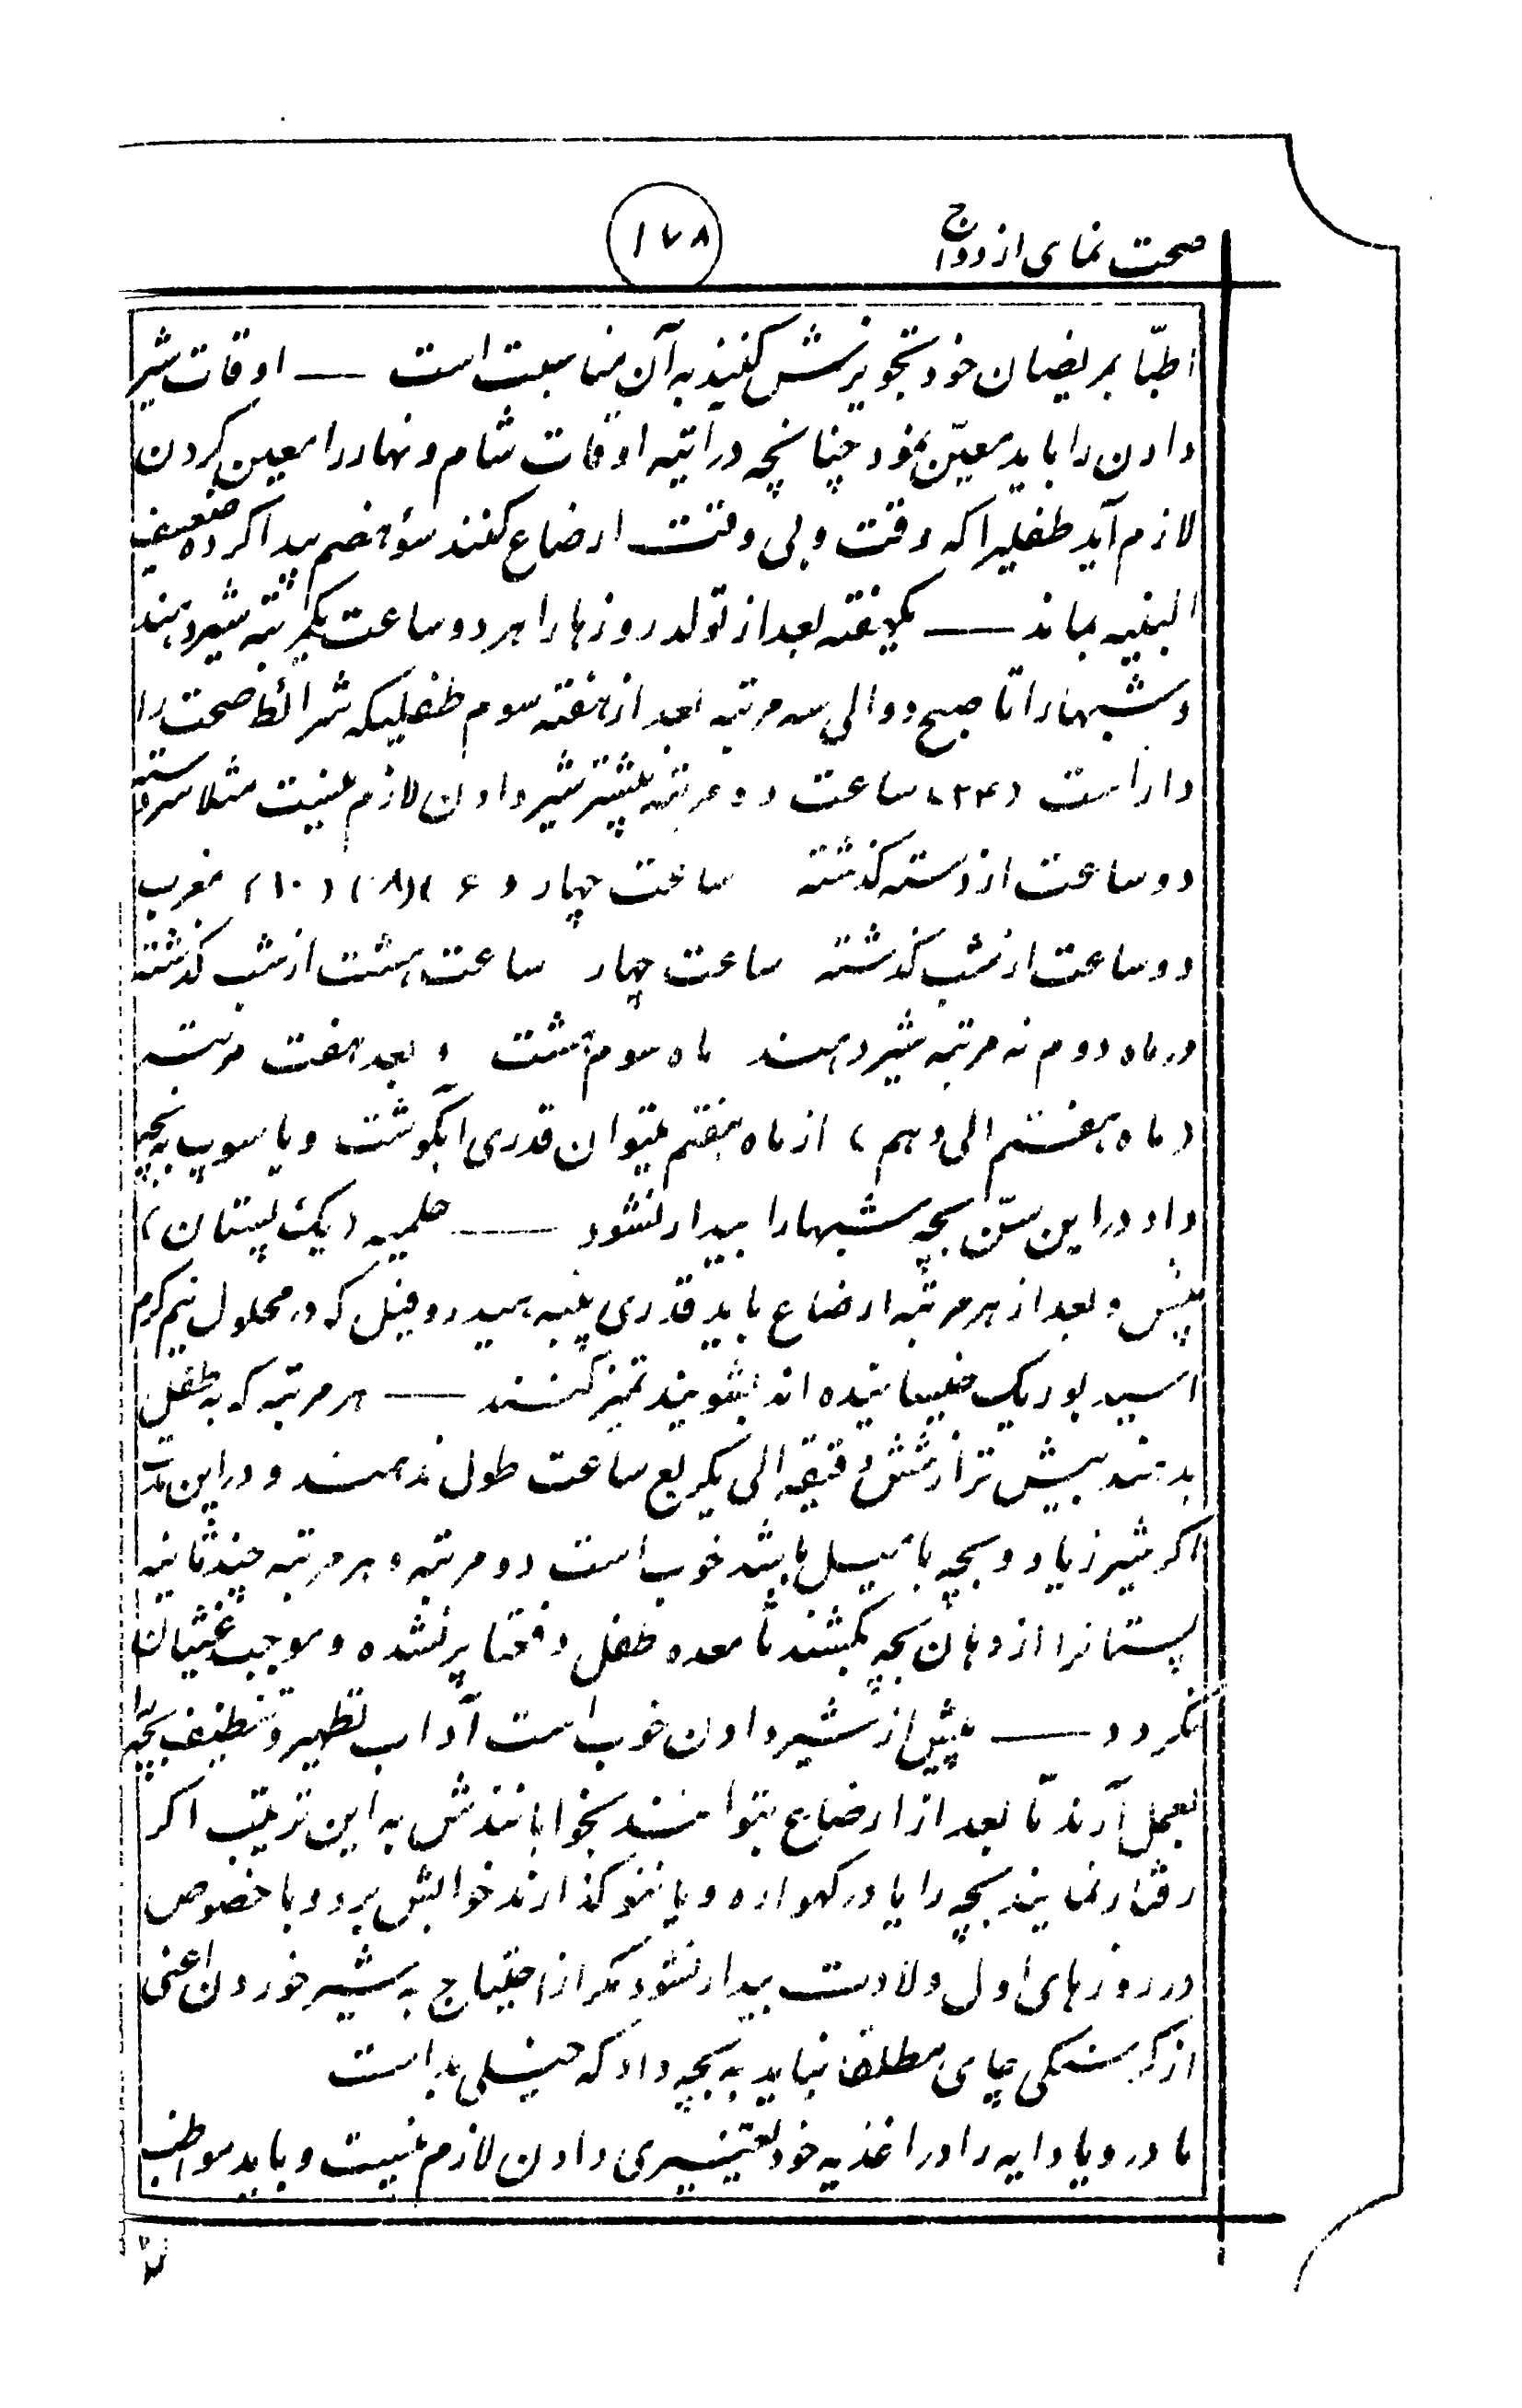 صحت نمای ازدواج
۱۷۸
اطبّا بمریضان خود تجویزش کنند به آن مناسبت است — اوقات شیر
دادن را باید معیّن نمود چنانچه در آتیه اوقات شام و نهار را معین کردن
لازم آید طفلیرا که وقت و بی وقت ارضاع کنند سؤ هضم پیدا کرده ضعیف
البنیه بماند — یکهفته بعد از تولد روزها را هر دو ساعت یکمرتبه شیر دهند
و شبها را تا صبح دو الی سه مرتبه بعد از هفته سوم طفلیکه شرائط صحت را
دارا است (۲۴) ساعت ده مرتبه بیشتر شیر دادن لازم نیست مثلا سردسته
دو ساعت از دسته گذشته ساعت چهار و (۶) (۸) (۱۰) مغرب
دو ساعت از شب گذشته ساعت چهار ساعت هشت از شب گذشته
در ماه دوم نه مرتبه شیر دهند ماه سوم هشت و بعد هفت مرتبه
(ماه هفتم الی دهم) از ماه هفتم میتوان قدری آبگوشت و یا سوپ به بچه
داد در این سنّ بچه شبها را بیدار نشود — حلمیه (یک پستان)
پیش و بعد از هر مرتبه ارضاع باید قدری پنبه هیدروفیل که در محلول نیم گرم
اسید بوریک خیسانیده اند بشویند تمیز کنند — هر مرتبه که به طفل
بدهند بیش تر از شش دقیقه الی یکربع ساعت طول ندهند و در این مدت
اگر شیر زیاد و بچه با میل باشد خوب است دو مرتبه و هر مرتبه چند ثانیه
پستانرا از دهان بچه بکشند تا معده طفل دفعتا پر نشده و موجب غثیان
نگردد — پیش از شیر دادن خوب است آداب تطهیر و تنظیف بچه را
بعمل آرند تا بعد از ارضاع بتوانند بخوابانندش به این ترتیب اگر
رفتار نمایند بچه را یا در گهواره و یا ننو گذارند خوابش برد و با خصوص
در روزهای اول ولادت بیدار نشود مگر از احتیاج به شیر خوردن اعنی
از گرسنگی چای مطلقا نباید به بچه داد که خیلی بد است
مادر و یا دایه را در اغذیه خود تغییری دادن لازم نیست و باید مواظب